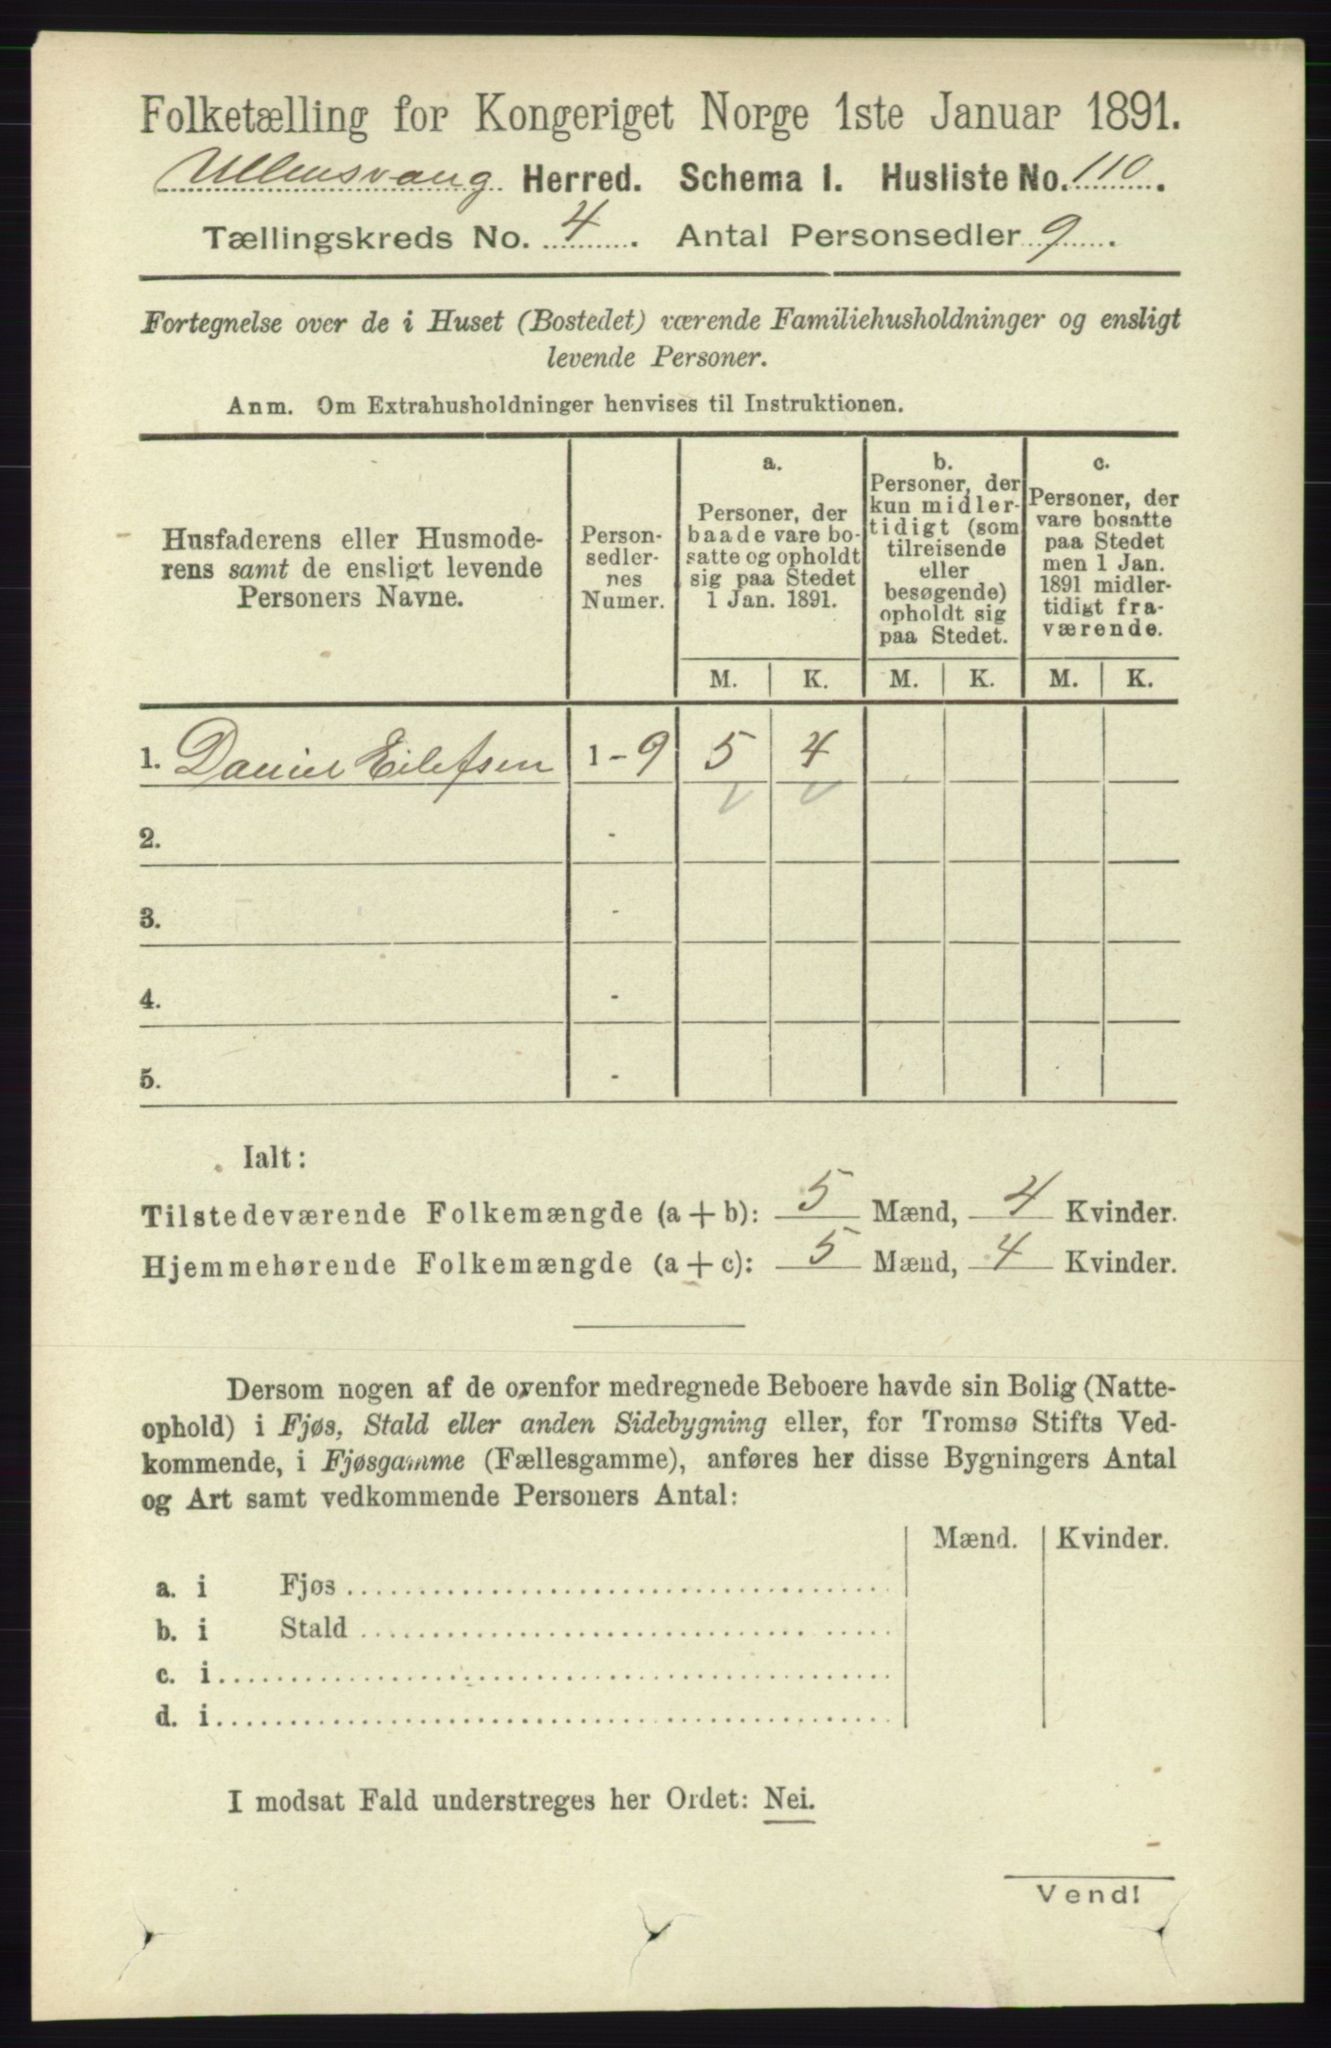 Folketælling for Kongeriget Norge 1ste Januar 1891.
Ullensvang Herred. Schema I. Husliste No. 110.
Tællingskreds No. 4. Antal Personsedler 9.
Fortegnelse over de i Huset (Bostedet) værende Familiehusholdninger og ensligt
levende Personer.
Anm. Om Extrahusholdninger henvises til Instruktionen.
Husfaderens eller Husmode-
rens samt de ensligt levende
Personers Navne.
Person-
sedler-
nes
Numer.
a.
Personer, der
baade vare bo-
satte og opholdt
sig paa Stedet
1 Jan. 1891.
b.
Personer, der
kun midler-
tidigt (som
tilreisende
eller
besøgende)
opholdt sig
paa Stedet.
c.
Personer, der
vare bosatte
paa Stedet
men 1 Jan.
1891 midler-
tidigt fra-
værende.
M. K. M. K. M. K.
1. Daniel Eilefsen 1-9 5 4
2. -
3. -
4. -
5. -
Ialt:
Tilstedeværende Folkemængde (a+b): 5 Mænd, 4 Kvinder.
Hjemmehørende Folkemængde (a+c): 5 Mænd, 4 Kvinder.
Dersom nogen af de ovenfor medregnede Beboere havde sin Bolig (Natte-
ophold) i Fjøs, Stald eller anden Sidebygning eller, for Tromsø Stifts Ved-
kommende, i Fjøsgamme (Fællesgamme), anføres her disse Bygningers Antal
og Art samt vedkommende Personers Antal:
Mænd. Kvinder.
a. i Fjøs
b. i Stald
c. i
d. i
I modsat Fald understreges her Ordet: Nei.
Vend!